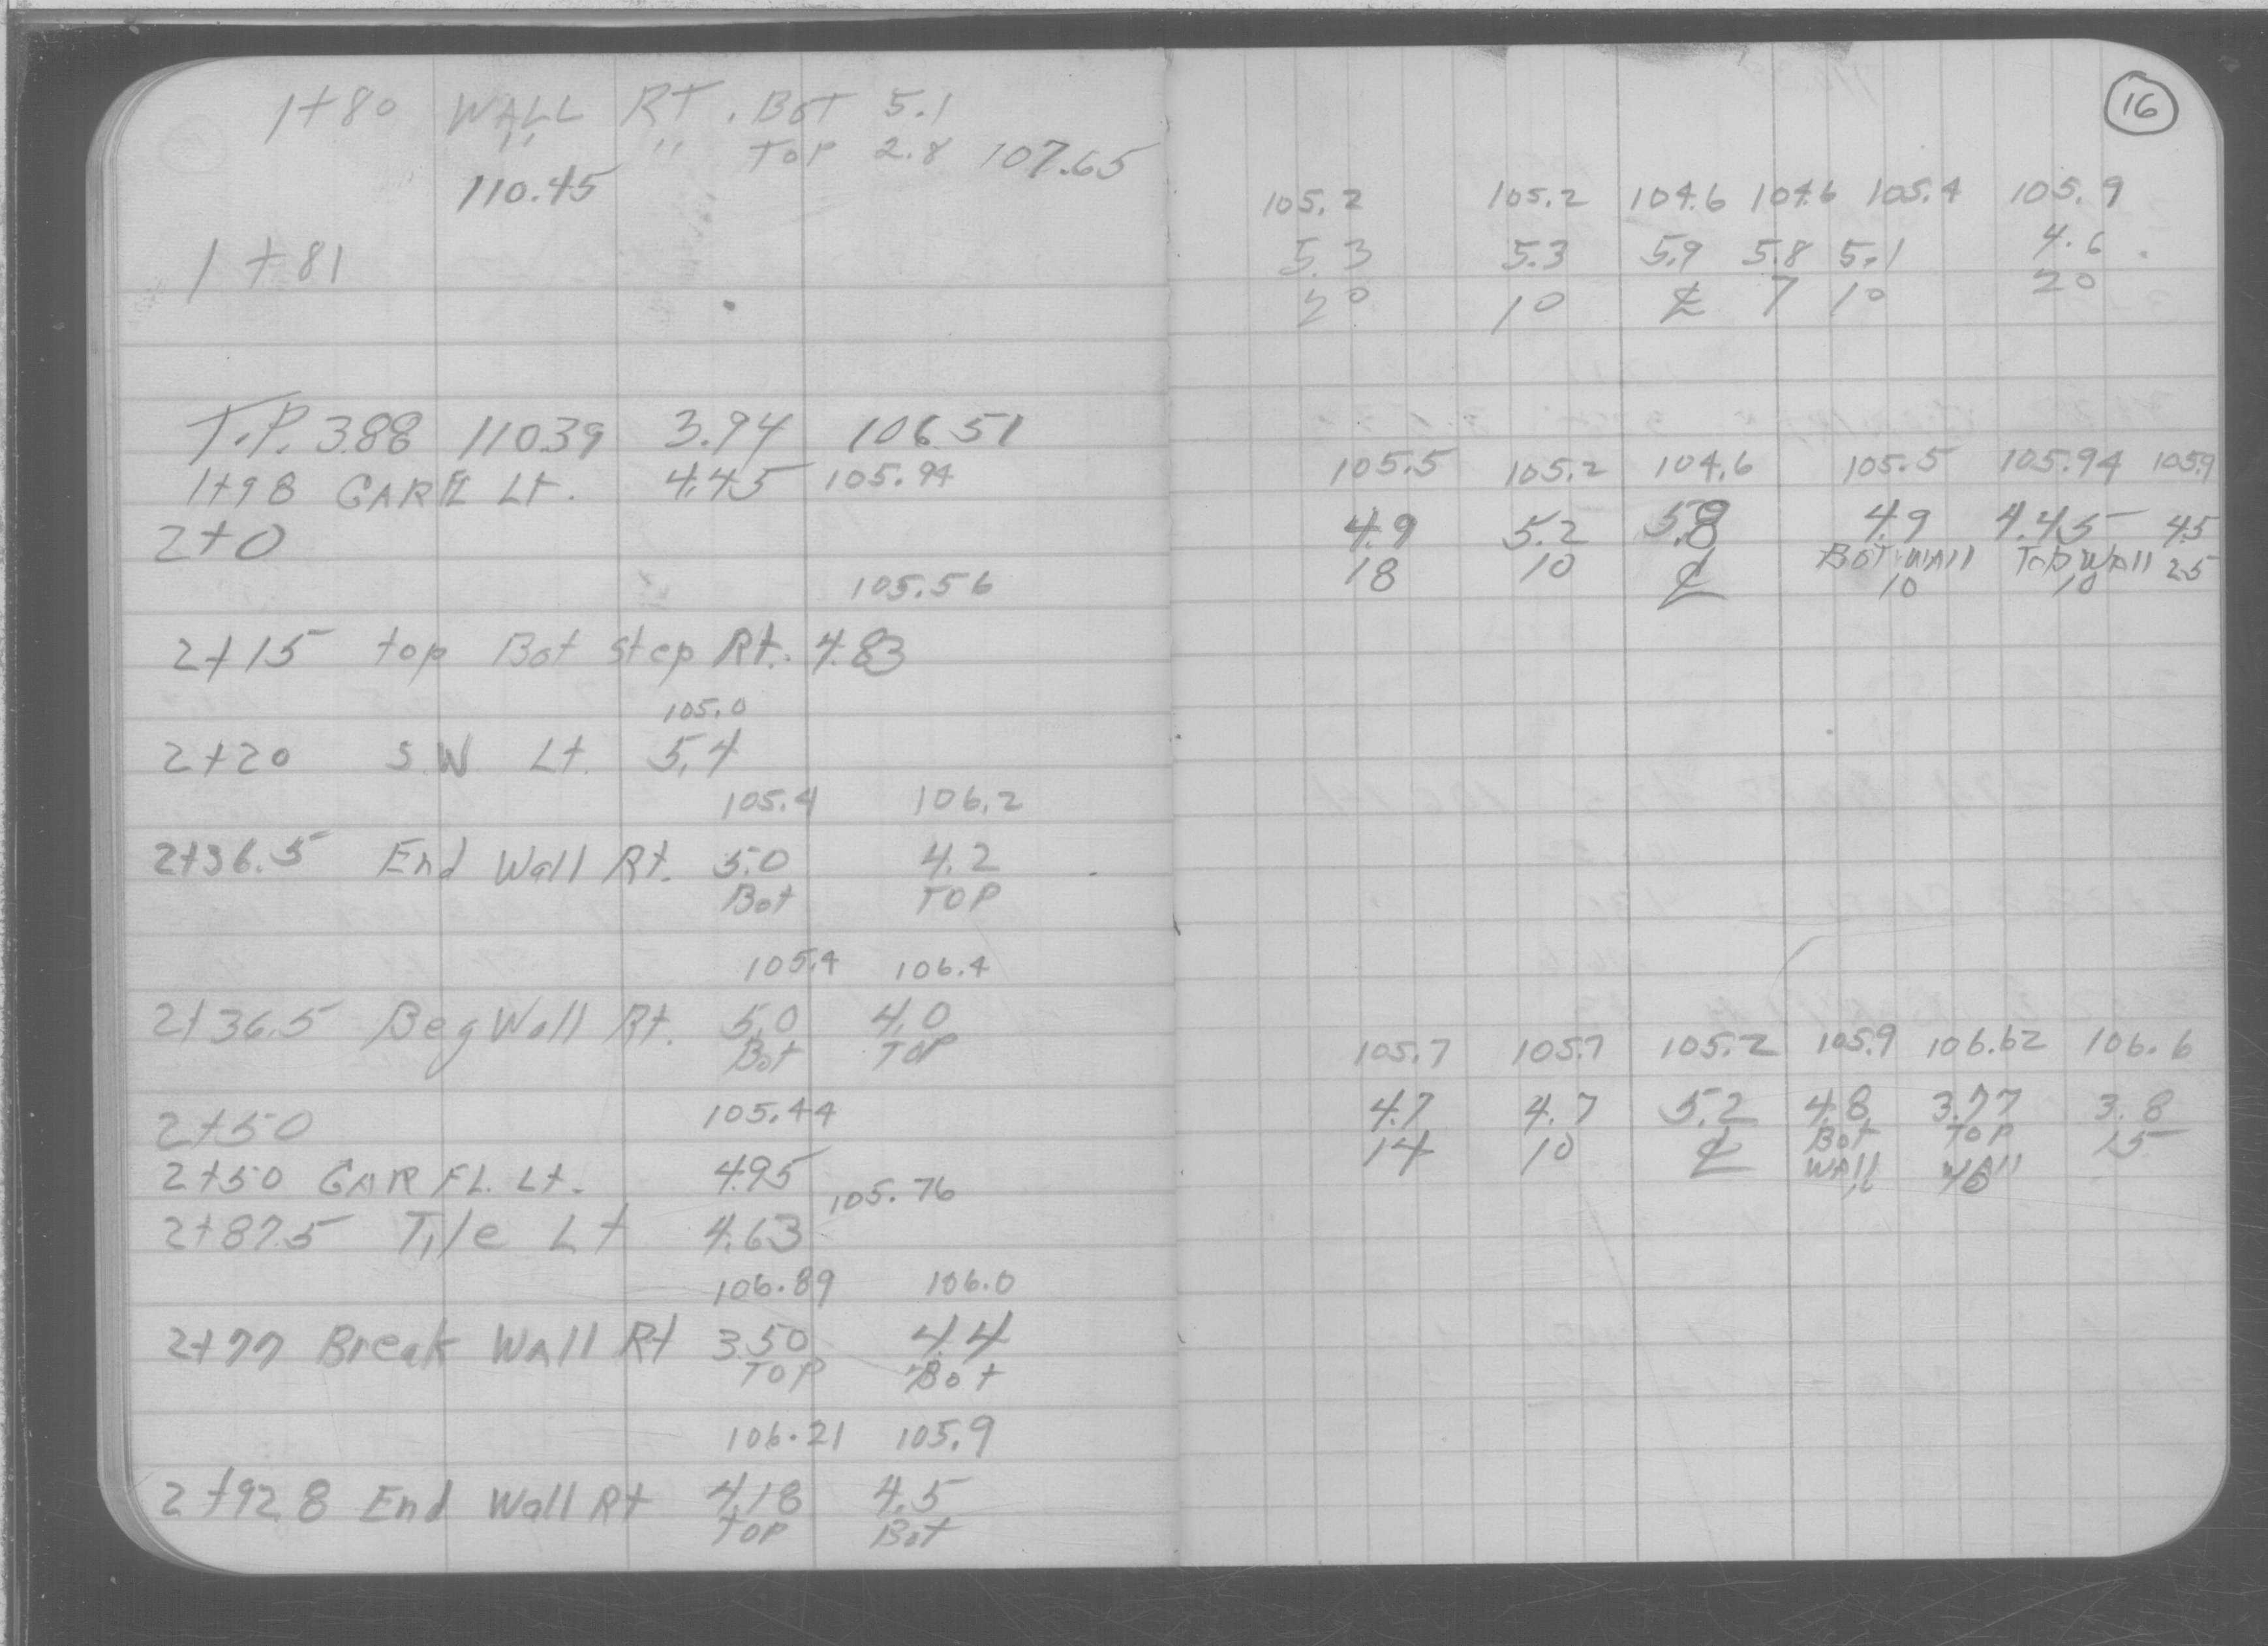 1+80 WALL RT. BOT 5.1
" " TOP 2.8 107.65
110.45
1+81
T.P. 3.88 110.39 3.94 106.51
1+98 GAR FL Lt. 4.45 105.94
2+0
105.56
2+15 top Bot Step Rt. 4.83
105.0
2+20 S.W Lt. 5.4
105.4 106.2
2+36.5 End Wall Rt. 5.0 4.2
Bot TOP
105.4 106.4
2+36.5 Beg Wall Rt. 5.0 4.0
Bot TOP
2+50 105.44
2+50 GAR FL. Lt. 4.95
105.76
2+87.5 Tile Lt 4.63
106.89 106.0
2+77 Break Wall Rt 3.50 4.4
TOP Bot
106.21 105.9
2+92.8 End Wall Rt 4.18 4.5
TOP Bot
16
105.2 105.2 104.6 104.6 105.4 105.9
5.3 5.3 5.9 5.8 5.1 4.6
20 10 ℄ 7 10 20
105.5 105.2 104.6 105.5 105.94 105.9
4.9 5.2 5.8 4.9 4.45 4.5
BOT WALL TOP WALL
18 10 ℄ 10 10 25
105.7 105.7 105.2 105.9 106.62 106.6
4.7 4.7 5.2 4.8 3.77 3.8
Bot TOP
14 10 ℄ WALL WALL 15